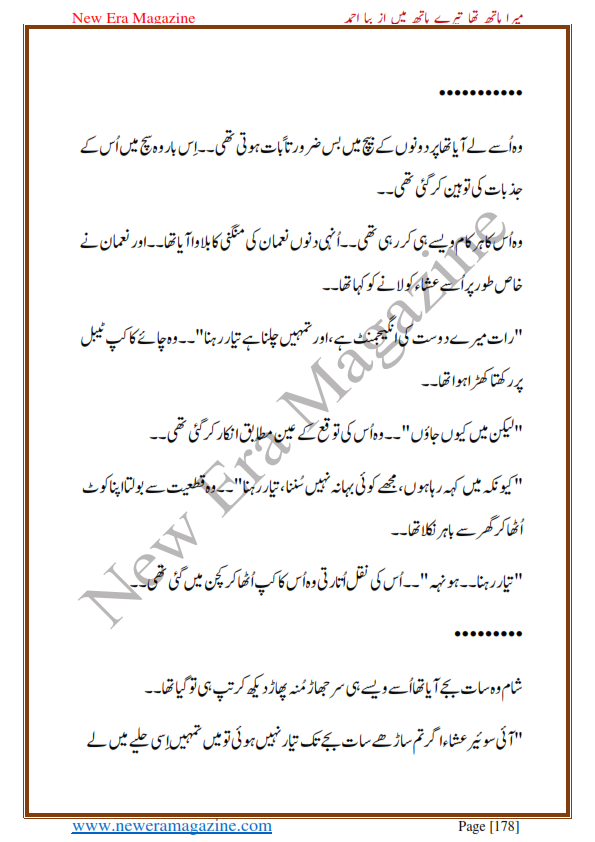 New Era Magazine میرا ہاتھ تھا تیرے ہاتھ میں از ببا احمد
•••••••••••
وہ اُسے لے آیا تھا پر دونوں کے بیچ میں بس ضرورتاً بات ہوتی تھی۔۔ اِس بار وہ سچ میں اُس کے
جذبات کی توہین کر گئی تھی۔۔
وہ اُس کا ہر کام ویسے ہی کر رہی تھی۔۔ اُنہی دنوں نعمان کی منگنی کا بلاوا آیا تھا۔۔ اور نعمان نے
خاص طور پر اُسے عشاء کو لانے کو کہا تھا۔۔
"رات میرے دوست کی انگیجمنٹ ہے، اور تمہیں چلنا ہے تیار رہنا"۔۔ وہ چائے کا کپ ٹیبل
پر رکھتا کھڑا ہوا تھا۔۔
"لیکن میں کیوں جاؤں"۔۔ وہ اُس کی توقع کے عین مطابق انکار کر گئی تھی۔۔
"کیونکہ میں کہہ رہا ہوں، مجھے کوئی بہانہ نہیں سُننا، تیار رہنا"۔۔ وہ قطعیت سے بولتا اپنا کوٹ
اُٹھا کر گھر سے باہر نکلا تھا۔۔
"تیار رہنا۔۔ ہونہہ"۔۔ اُس کی نقل اُتارتی وہ اُس کا کپ اُٹھا کر کچن میں گئی تھی۔۔
•••••••••
شام وہ سات بجے آیا تھا اُسے ویسے ہی سر جھاڑ مُنہ پھاڑ دیکھ کر تپ ہی تو گیا تھا۔۔
"آئی سوئیر عشاء اگر تم ساڑھے سات بجے تک تیار نہیں ہوئی تو میں تمہیں اِسی حلیے میں لے
New Era Magazine
www.neweramagazine.com Page [178]